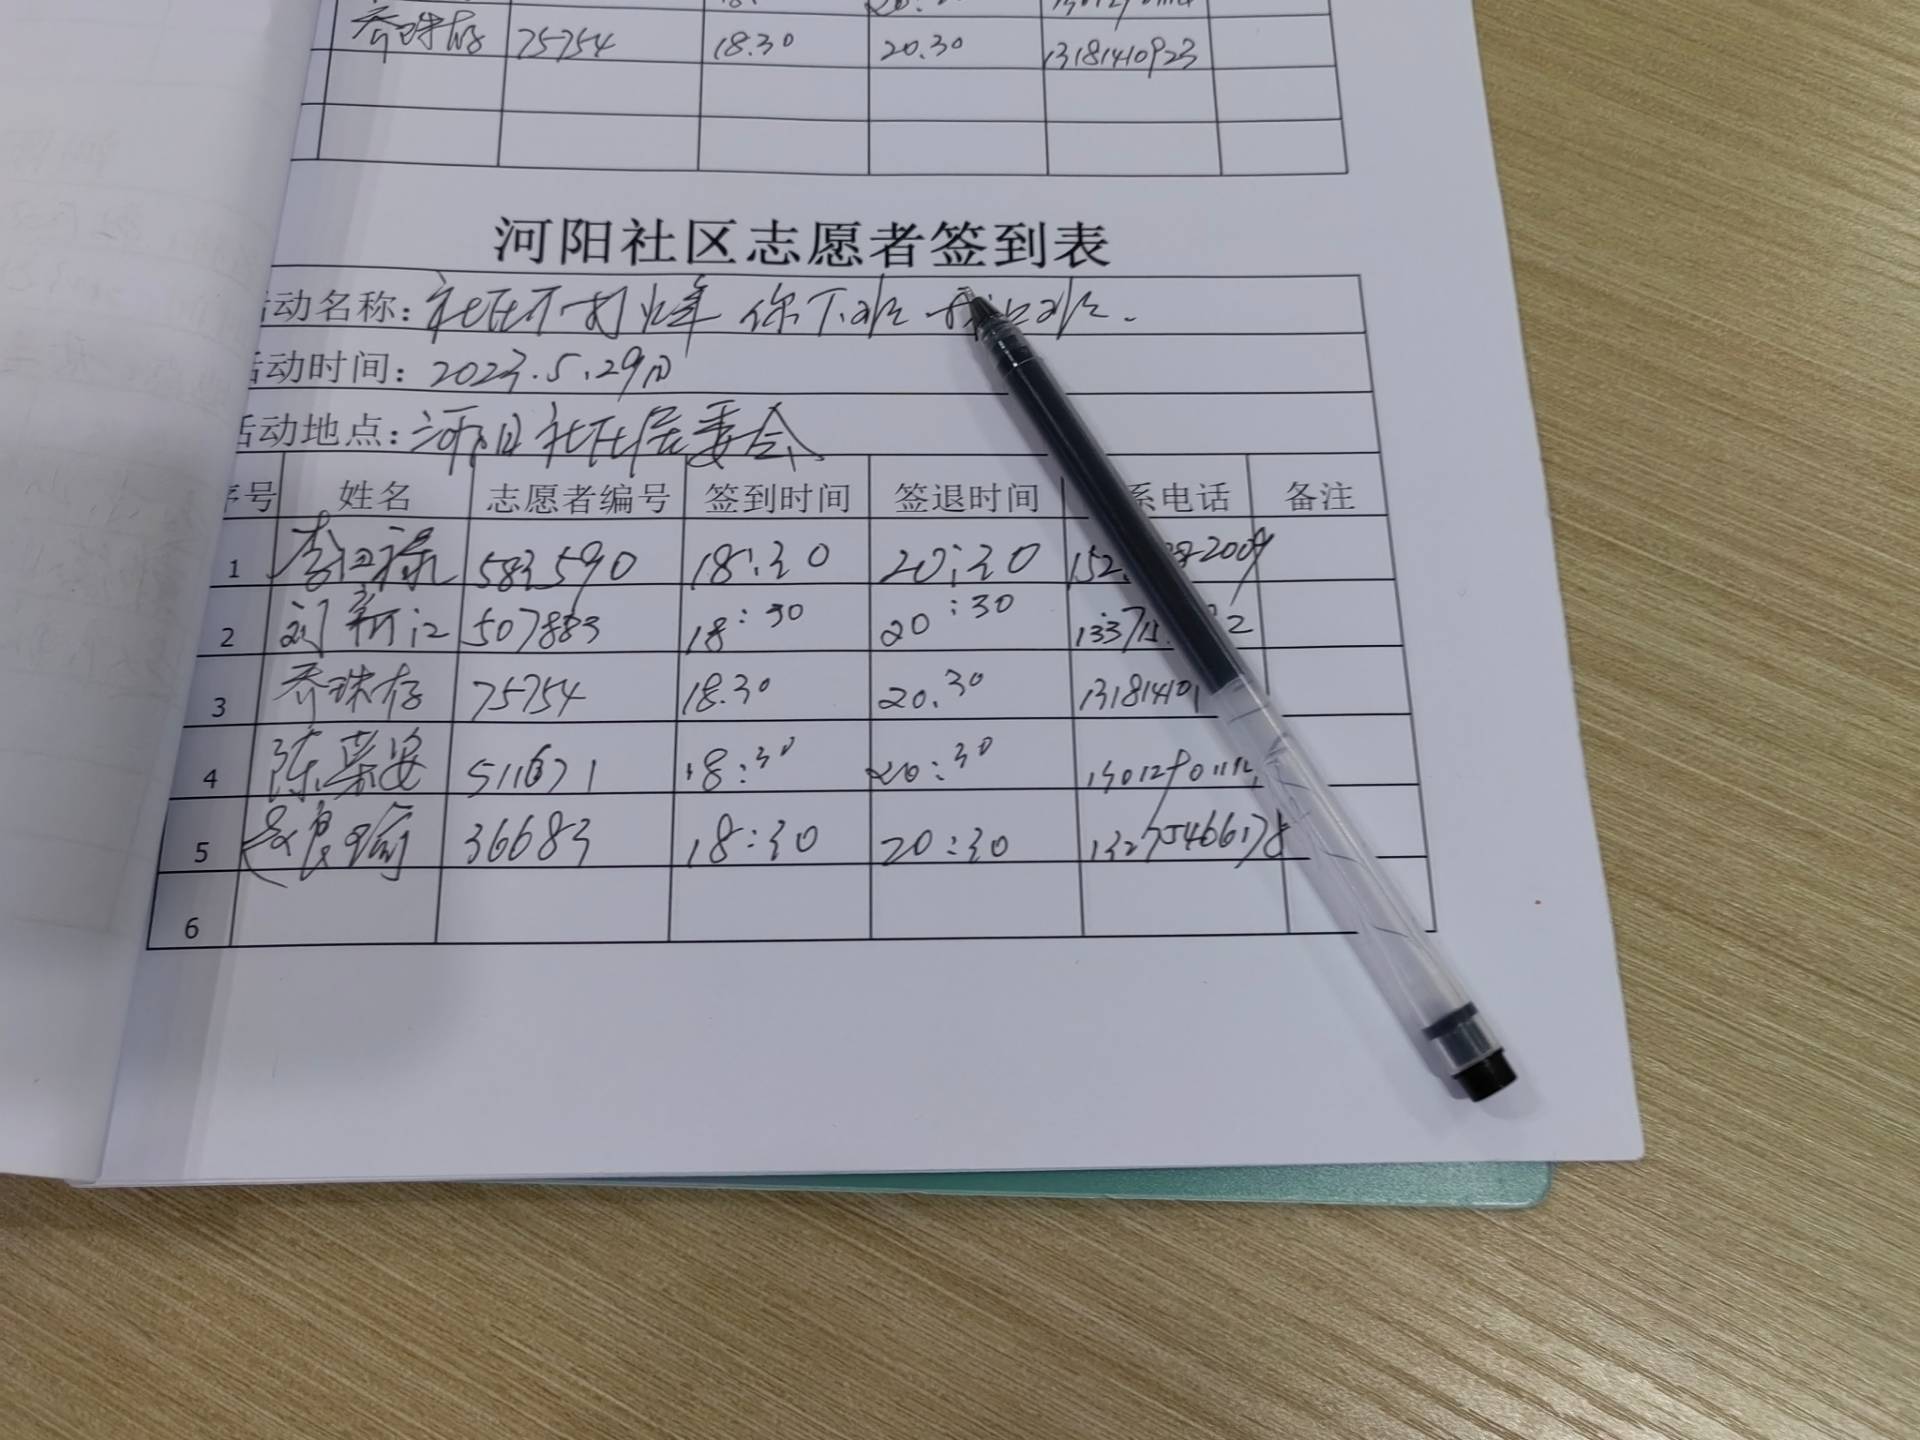 乔珠存 75754 18.30 20.30 13181410923
河阳社区志愿者签到表
活动名称: 社区不打烊 你下班 我上班.
活动时间: 2023.5.29日
活动地点: 河阳社区居委会
序号 姓名 志愿者编号 签到时间 签退时间 系电话 备注
1 583590 18:30 20:30
2 刘新江 507883 18:30 20:30
3 乔珠存 75754 18.30 20.30 13181410
4 陈荣安 511671 18:30 20:30
5 36683 18:30 20:30 13275466178
6